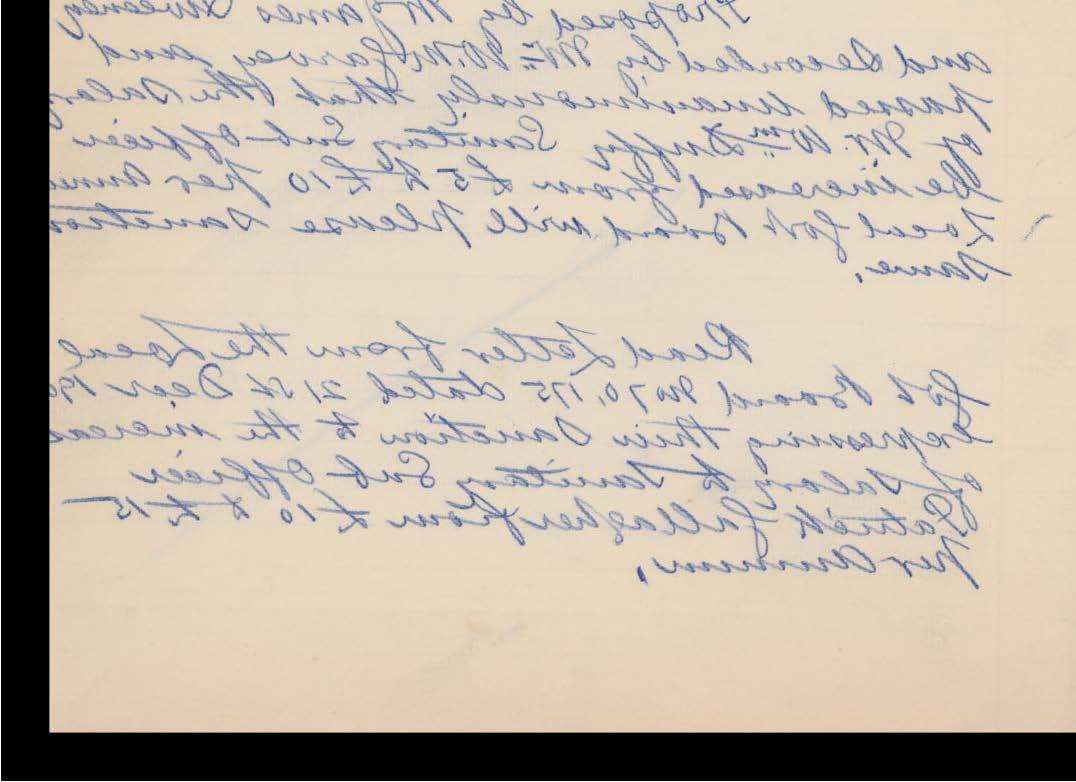 Proposed by Mr James Sweeney
and Seconded by Mr W. McGarvey and
passed unanimously that the Salary
of Mr. Wm Duffy Sanitary Sub-Officer
be increased from £5 to £10 per Annu
Local Govt Board will please Sanction
Same.
Read Letter from the Local
Govt Board No 70,175 dated 21st Decr 190
expressing their Sanction to the increas
of Salary to Sanitary Sub Officer
Patrick Gallagher from £10 to £15
per Annum.